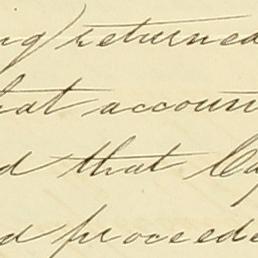 ng returned
hat accoun
d that Ca
d proceede